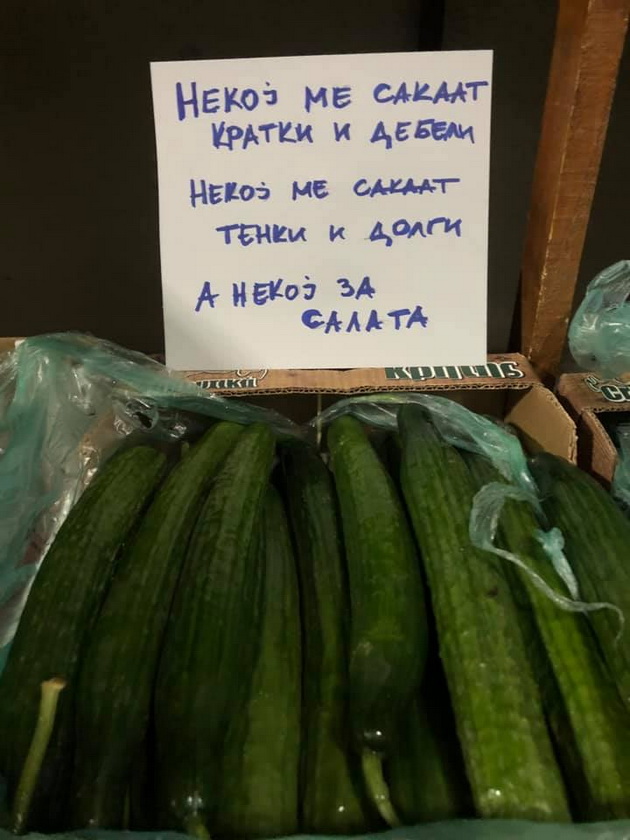 НЕКОЈ МЕ САКААТ
КРАТКИ И ДЕБЕЛИ
НЕКОЈ МЕ САКААТ
ТЕНКИ И ДОЛГИ
А НЕКОЈ ЗА
САЛАТА